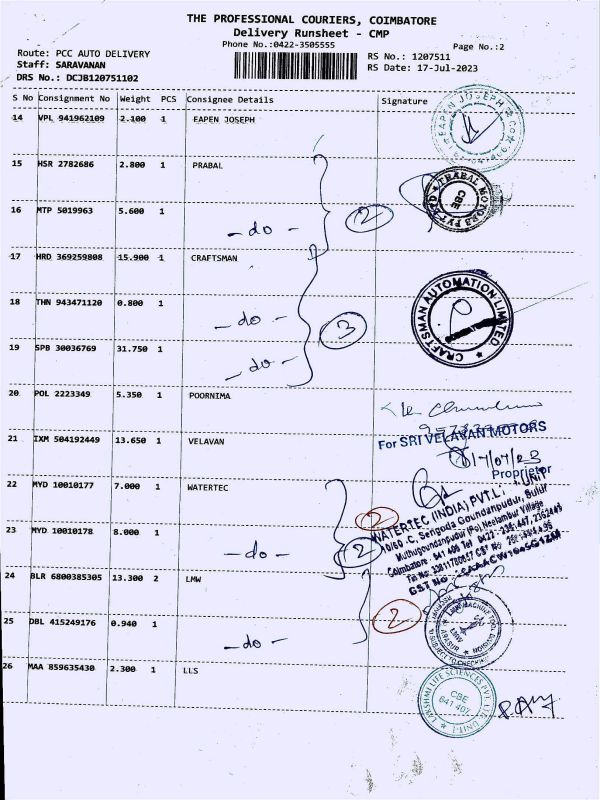 THE PROFESSIONAL COURIERS, COIMBATORE
Delivery Runsheet - CMP
Phone No.:0422-3505555
Page No.:2
Route: PCC AUTO DELIVERY
RS No.: 1207511
Staff: SARAVANAN
RS Date: 17-Jul-2023
DRS No.: DCJB120751102
S No Consignment No Weight PCS Consignee Details Signature
14 VPL 941962109 2.100 1 EAPEN JOSEPH
EAPEN JOSEPH
15 HSR 2782686 2.800 1 PRABAL
PRABAL MOTORS PVT LTD
CBE
16 MTP 5019963 5.600 1 - do - 2
17 HRD 369259808 15.900 1 CRAFTSMAN
CRAFTSMAN AUTOMATION LIMITED
18 THN 943471120 0.800 1 - do - 3
19 SPB 30036769 31.750 1 - do -
20 POL 2223349 5.350 1 POORNIMA
21 IXM 504192449 13.650 1 VELAVAN
For SRI VELAVAN MOTORS
17/07/23
Proprietor
22 MYD 10010177 7.000 1 WATERTEC
2
UNIT
WATERTEC (INDIA) PVT.L
10/60 .C, Sengoda Goundanpudur, Sulur
Muthugoundanpudur (Po), Neelambur Village
Coimbatore - 641 406 Tel
GST No
23 MYD 10010178 8.000 1 - do - 2
24 BLR 6800385305 13.300 2 LMW
2
LMW
25 DBL 415249176 0.940 1 - do -
26 MAA 859635430 2.300 1 LLS
LAKSHMI LIFE SCIENCES PVT. LTD. UNIT-I
CBE
641 407